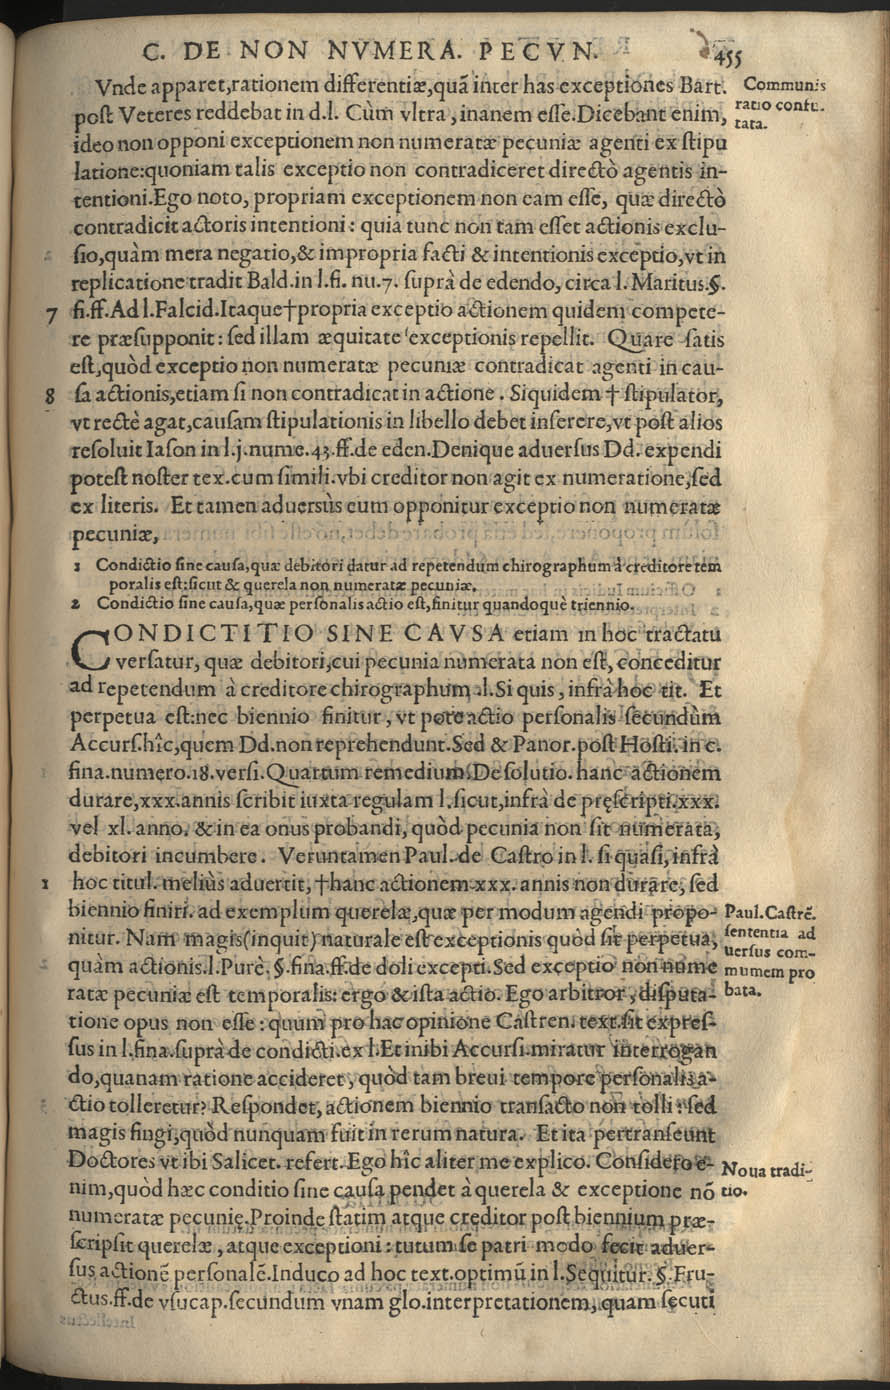 C. DE NON NVMERA. PECVN. 455
Vnde apparet,rationem differentiæ,quã inter has exceptiones Bart.
Communis
post Veteres reddebat in d.l. Cùm vltra, inanem esse.Dicebant enim,
ratio confu-
tata.
ideo non opponi exceptionem non numeratæ pecuniæ agenti ex stipu
latione:quoniam talis exceptio non contradiceret directò agentis in-
tentioni.Ego noto, propriam exceptionem non eam esse, quæ directò
contradicit actoris intentioni: quia tunc non tam esset actionis exclu-
sio,quàm mera negatio,& impropria facti & intentionis exceptio,vt in
replicatione tradit Bald.in l.fi. nu.7. suprà de edendo, circa l. Maritus.§.
7 fi.ff.Ad l.Falcid.Itaque†propria exceptio actionem quidem compete-
re præsupponit: sed illam æquitate exceptionis repellit. Quare satis
est,quòd exceptio non numeratæ pecuniæ contradicat agenti in cau-
8 sa actionis,etiam si non contradicat in actione. Siquidem † stipulator,
vt rectè agat,causam stipulationis in libello debet inserere,vt post alios
resoluit Iason in l.j.nume.43.ff.de eden.Denique aduersus Dd. expendi
potest noster tex.cum simili.vbi creditor non agit ex numeratione,sed
ex literis. Et tamen aduersùs eum opponitur exceptio non numeratæ
pecuniæ,
1 Condictio sine causa,quæ debitori datur ad repetendum chirographum à creditore tem
poralis est:sicut & querela non numeratæ pecuniæ.
2 Condictio sine causa,quæ personalis actio est,finitur quandoquè triennio.
CONDICTITIO SINE CAVSA etiam in hoc tractatu
versatur, quæ debitori,cui pecunia numerata non est, conceditur
ad repetendum à creditore chirographum .l.Si quis, infrà hoc tit. Et
perpetua est:nec biennio finitur, vt pote actio personalis secundùm
Accurs.hîc,quem Dd.non reprehendunt.Sed & Panor.post Hosti.in c.
fina.numero.18.versi.Quartum remedium.De solutio. hanc actionem
durare,xxx.annis scribit iuxta regulam l.sicut,infrà de pręscripti.xxx.
vel xl. anno. & in ea onus probandi, quòd pecunia non sit numerata,
debitori incumbere. Veruntamen Paul. de Castro in l. si quasi, infrà
1 hoc titul. meliùs aduertit, †hanc actionem xxx. annis non durare, sed
biennio finiri. ad exemplum querelæ,quæ per modum agendi propo-
Paul.Castrẽ.
nitur. Nam magis(inquit)naturale est exceptionis quòd sit perpetua,
sententia ad
quàm actionis.l.Purè. §.fina.ff.de doli excepti.Sed exceptio non nume
uersus com-
munem pro
ratæ pecuniæ est temporalis: ergo & ista actio. Ego arbitror, disputa-
bata.
tione opus non esse: quum pro hac opinione Castren. text.sit expres-
sus in l.fina.suprà de condicti.ex l.Et inibi Accursi.miratur interrogan
do,quanam ratione accideret, quòd tam breui tempore personalis a-
ctio tolleretur? Respondet, actionem biennio transacto non tolli: sed
magis fingi,quòd nunquam fuit in rerum natura. Et ita pertranseunt
Doctores vt ibi Salicet. refert. Ego hîc aliter me explico. Considero e-
Noua tradi-
nim,quòd hæc conditio sine causa pendet à querela & exceptione nõ
tio.
numeratæ pecunię.Proinde statim atque creditor post biennium præ-
scripsit querelæ, atque exceptioni: tutum se patri modo fecit aduer-
sus actionẽ personalẽ.Induco ad hoc text.optimũ in l.Sequitur. §.Fru-
ctus.ff.de vsucap.secundum vnam glo.interpretationem, quam secuti